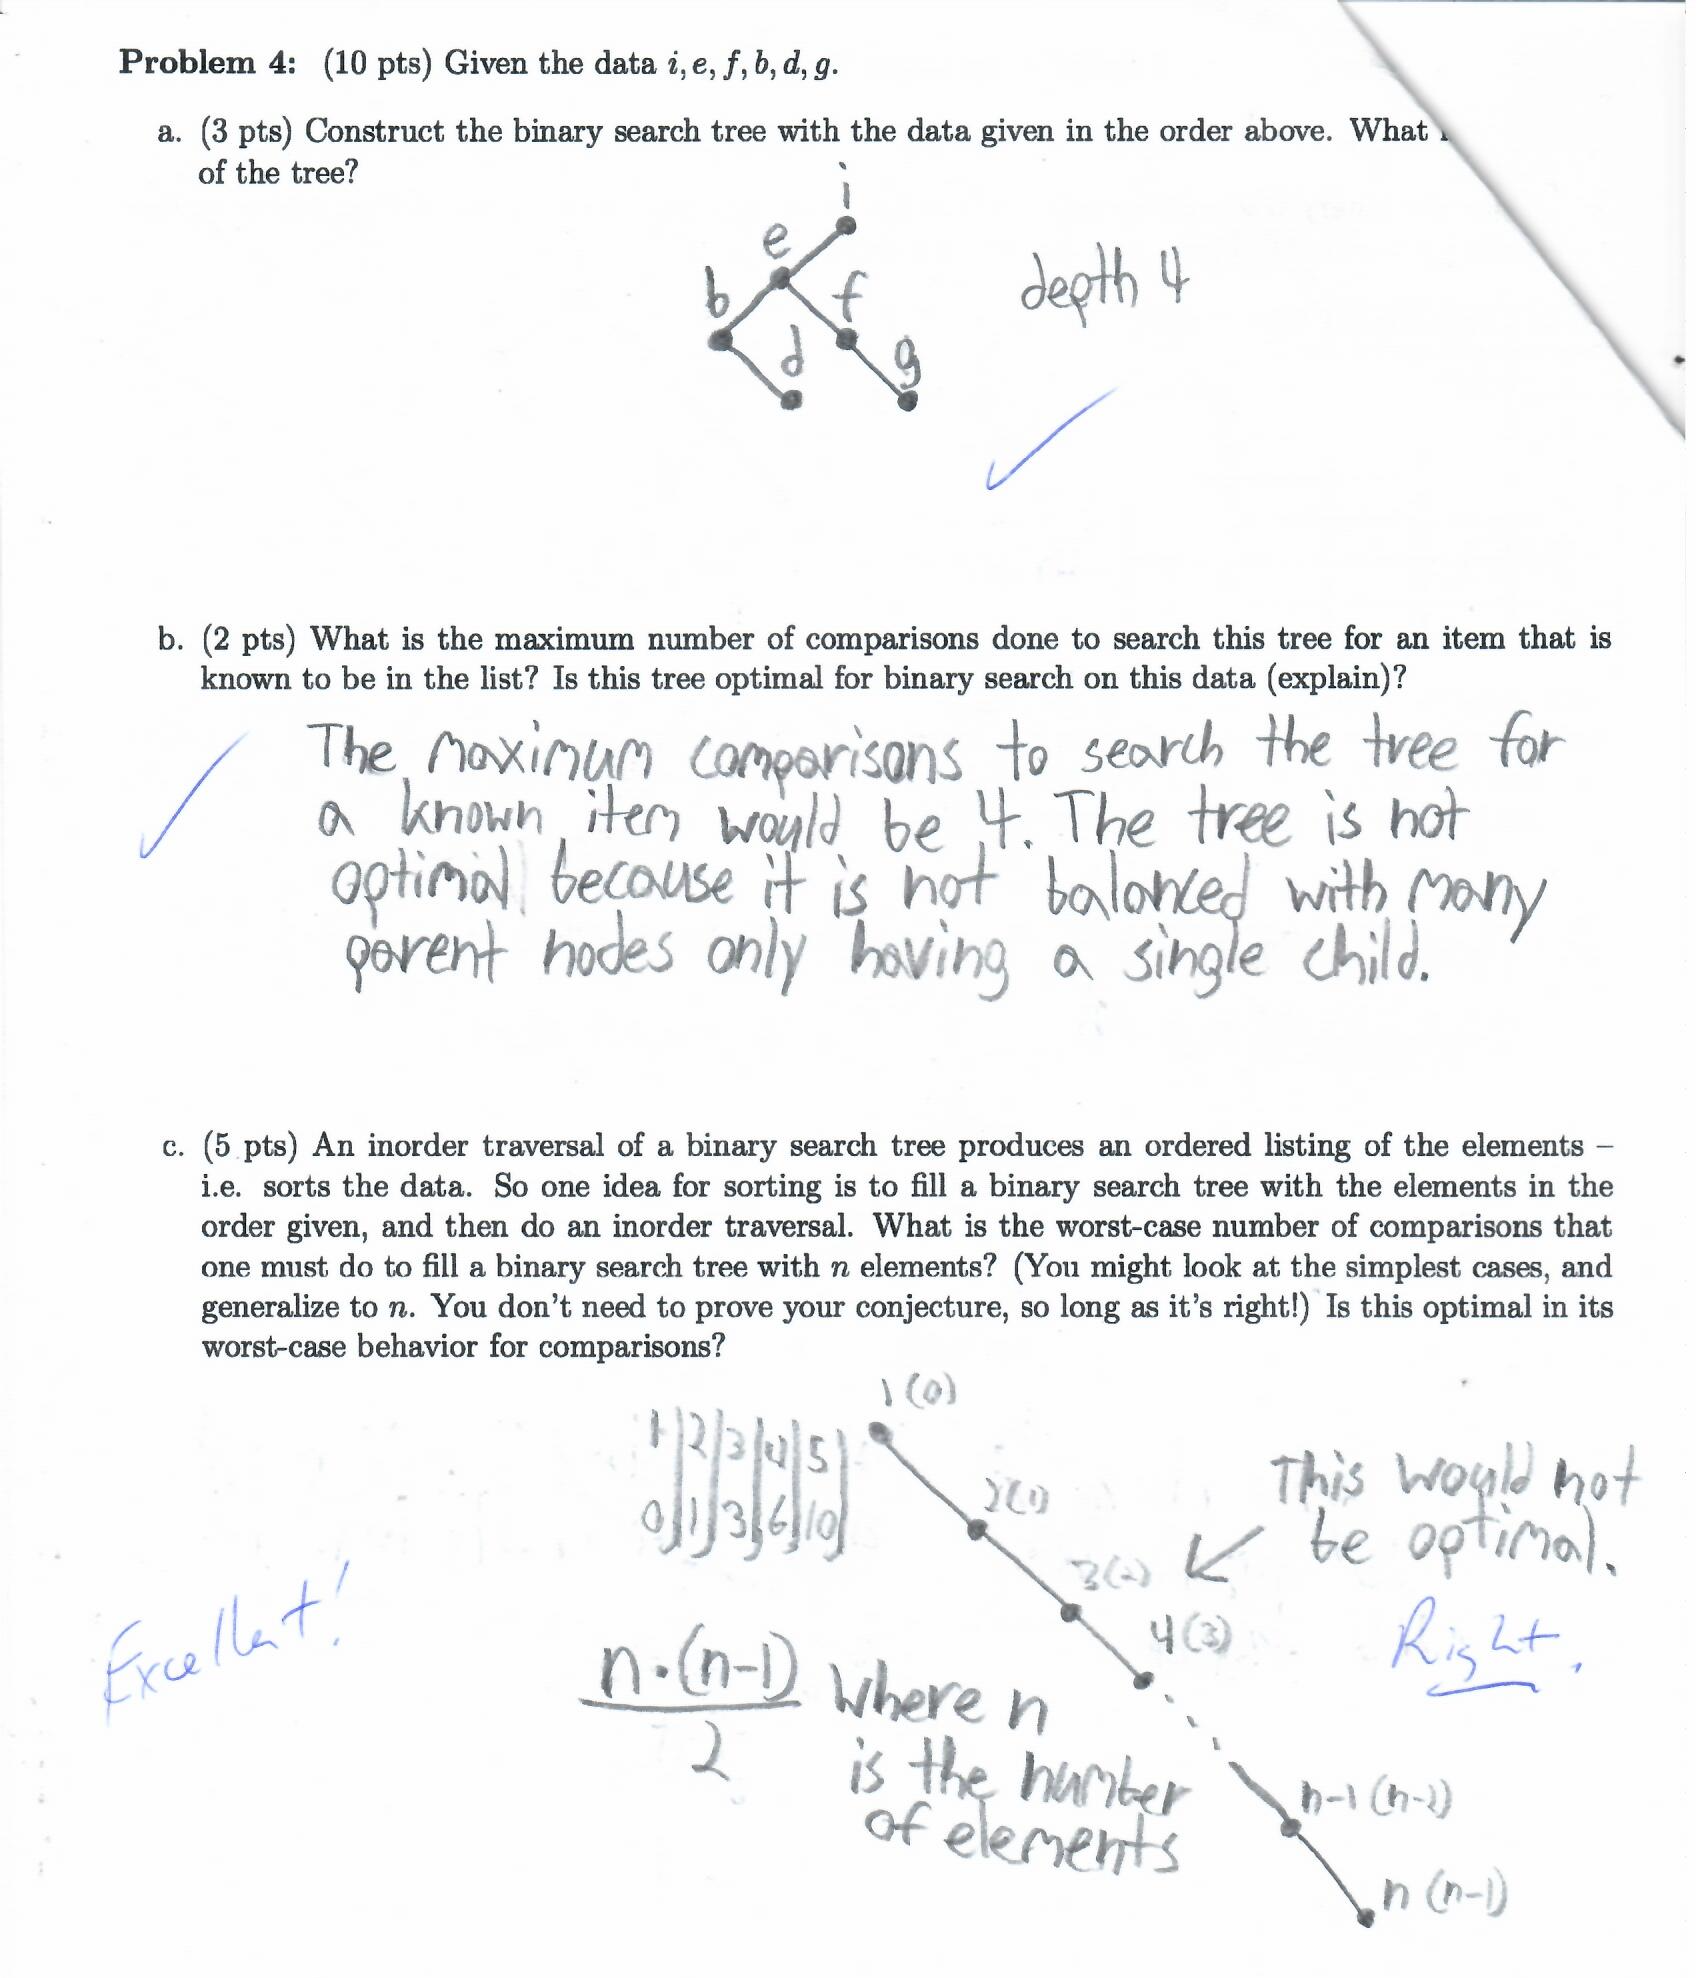 Problem 4: (10 pts) Given the data i, e, f, b, d, g.
a. (3 pts) Construct the binary search tree with the data given in the order above. What
of the tree?
i
e
b f
d g
depth 4
b. (2 pts) What is the maximum number of comparisons done to search this tree for an item that is
known to be in the list? Is this tree optimal for binary search on this data (explain)?
The maximum comparisons to search the tree for
a known item would be 4. The tree is not
optimal because it is not balanced with many
parent nodes only having a single child.
c. (5 pts) An inorder traversal of a binary search tree produces an ordered listing of the elements –
i.e. sorts the data. So one idea for sorting is to fill a binary search tree with the elements in the
order given, and then do an inorder traversal. What is the worst-case number of comparisons that
one must do to fill a binary search tree with n elements? (You might look at the simplest cases, and
generalize to n. You don't need to prove your conjecture, so long as it's right!) Is this optimal in its
worst-case behavior for comparisons?
1 (0)
1|2|3|4|5|
0|1|3|6|10|
2(1)
3(2)
4(3)
This would not
be optimal.
Excellent!
Right.
n·(n-1)
2
where n
is the number
of elements
n-1 (n-2)
n (n-1)